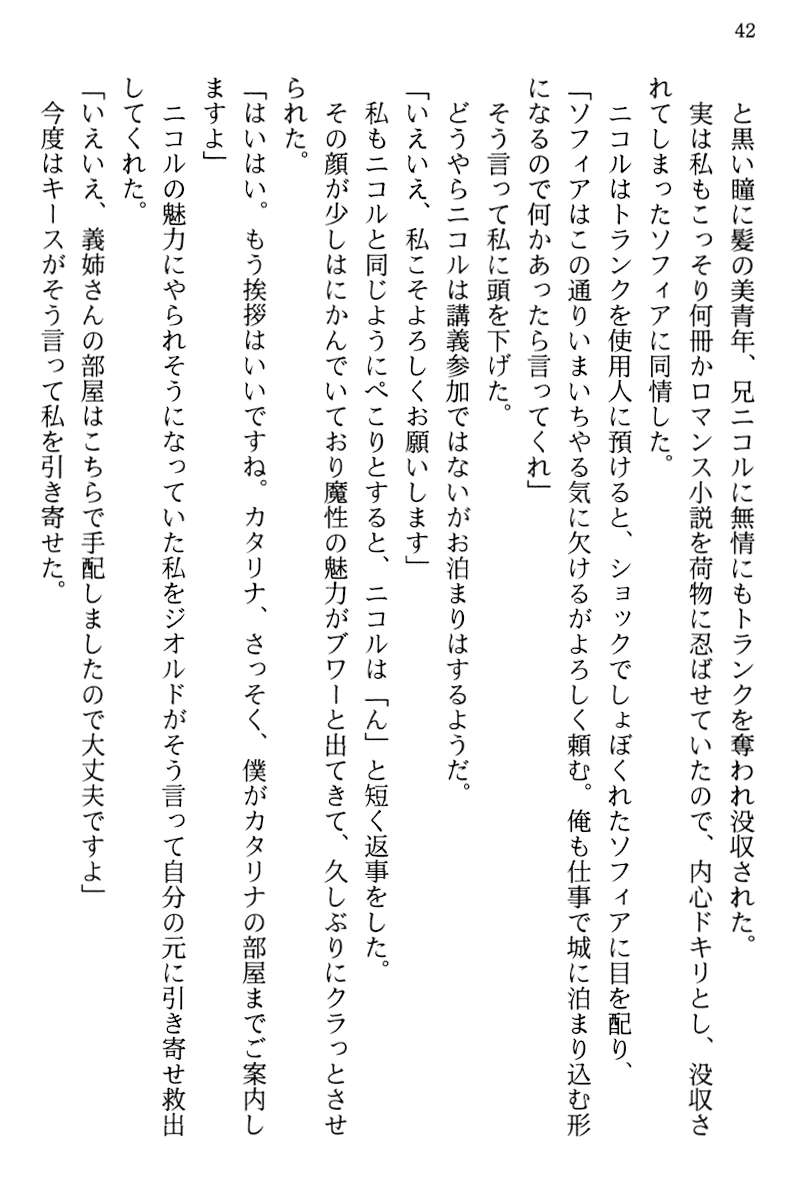 42
と黒い瞳に髪の美青年、兄ニコルに無情にもトランクを奪われ没収された。
実は私もこっそり何冊かロマンス小説を荷物に忍ばせていたので、内心ドキリとし、没収さ
れてしまったソフィアに同情した。
ニコルはトランクを使用人に預けると、ショックでしょぼくれたソフィアに目を配り、
「ソフィアはこの通りいまいちやる気に欠けるがよろしく頼む。俺も仕事で城に泊まり込む形
になるので何かあったら言ってくれ」
そう言って私に頭を下げた。
どうやらニコルは講義参加ではないがお泊まりはするようだ。
「いえいえ、私こそよろしくお願いします」
私もニコルと同じようにぺこりとすると、ニコルは「ん」と短く返事をした。
その顔が少しはにかんでいており魔性の魅力がブワーと出てきて、久しぶりにクラっとさせ
られた。
「はいはい。もう挨拶はいいですね。カタリナ、さっそく、僕がカタリナの部屋までご案内し
ますよ」
ニコルの魅力にやられそうになっていた私をジオルドがそう言って自分の元に引き寄せ救出
してくれた。
「いえいえ、義姉さんの部屋はこちらで手配しましたので大丈夫ですよ」
今度はキースがそう言って私を引き寄せた。